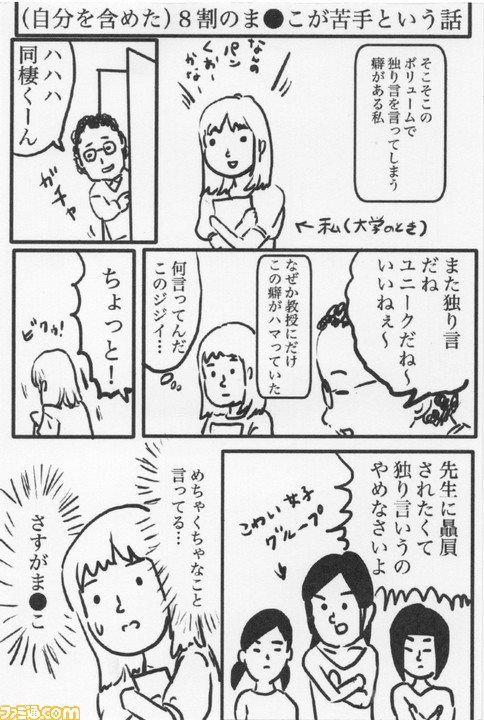 （自分を含めた）８割のま●こが苦手という話
そこそこの
ボリュームで
独り言を言ってしまう
癖がある私
なんの
パン
くおー
かな
←私（大学のとき）
ハハハ
同棲くーん
ガチャ
また独り言
だね
ユニークだね〜
いいねぇ〜
なぜか教授にだけ
この癖がハマっていた
何言ってんだ
このジジイ…
ちょっと！
ビクゥ!
先生に贔屓
されたくて
独り言いうの
やめなさいよ
こわい女子
グループ
めちゃくちゃなこと
言ってる…
さすがま●こ
ファミ通.com